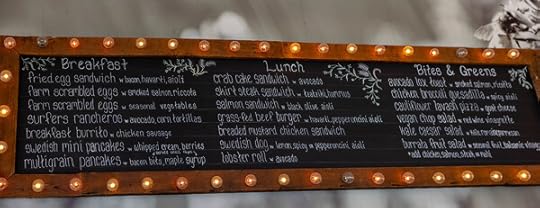 Breakfast
fried egg sandwich w bacon, havarti, aioli
farm scrambled eggs w smoked salmon, ricotta
farm scrambled eggs w seasonal vegetables
surfers rancheros w avocado, corn tortillas
breakfast burrito w chicken sausage
swedish mini pancakes w whipped cream, berries
multigrain pancakes w bacon bits, maple syrup
Lunch
crab cake sandwich w avocado
skirt steak sandwich w hummus
salmon sandwich w black olive aioli
grass-fed beef burger w havarti, pepperoncini aioli
breaded mustard chicken sandwich
swedish dog w lemon spicy pepperoncini aioli
lobster roll w avocado
Bites & Greens
avocado toast w smoked salmon, ricotta
chicken broccoli quesadilla w spicy aioli
cauliflower lavash pizza w goat cheese
vegan chop salad w red wine vinaigrette
kale caesar salad w parmesan
burrata fruit salad w seasonal fruit, balsamic
* add chicken, salmon, steak